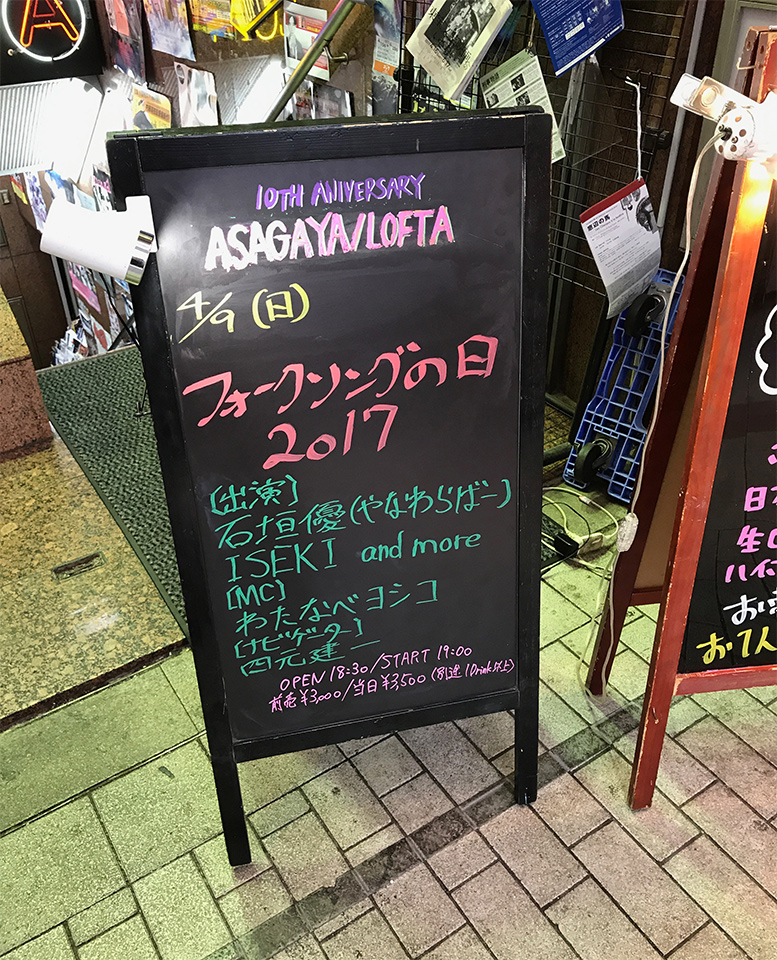 A
10TH ANIVERSARY
ASAGAYA/LOFTA
4/9 (日)
フォークソングの日
2017
[出演]
石垣優(やなわらばー)
ISEKI and more
[MC]
わたなべヨシコ
[ナビゲーター]
四元建一
OPEN 18:30/START 19:00
前売¥3,000/当日¥3,500 (別途1Drink以上)
窓辺の馬